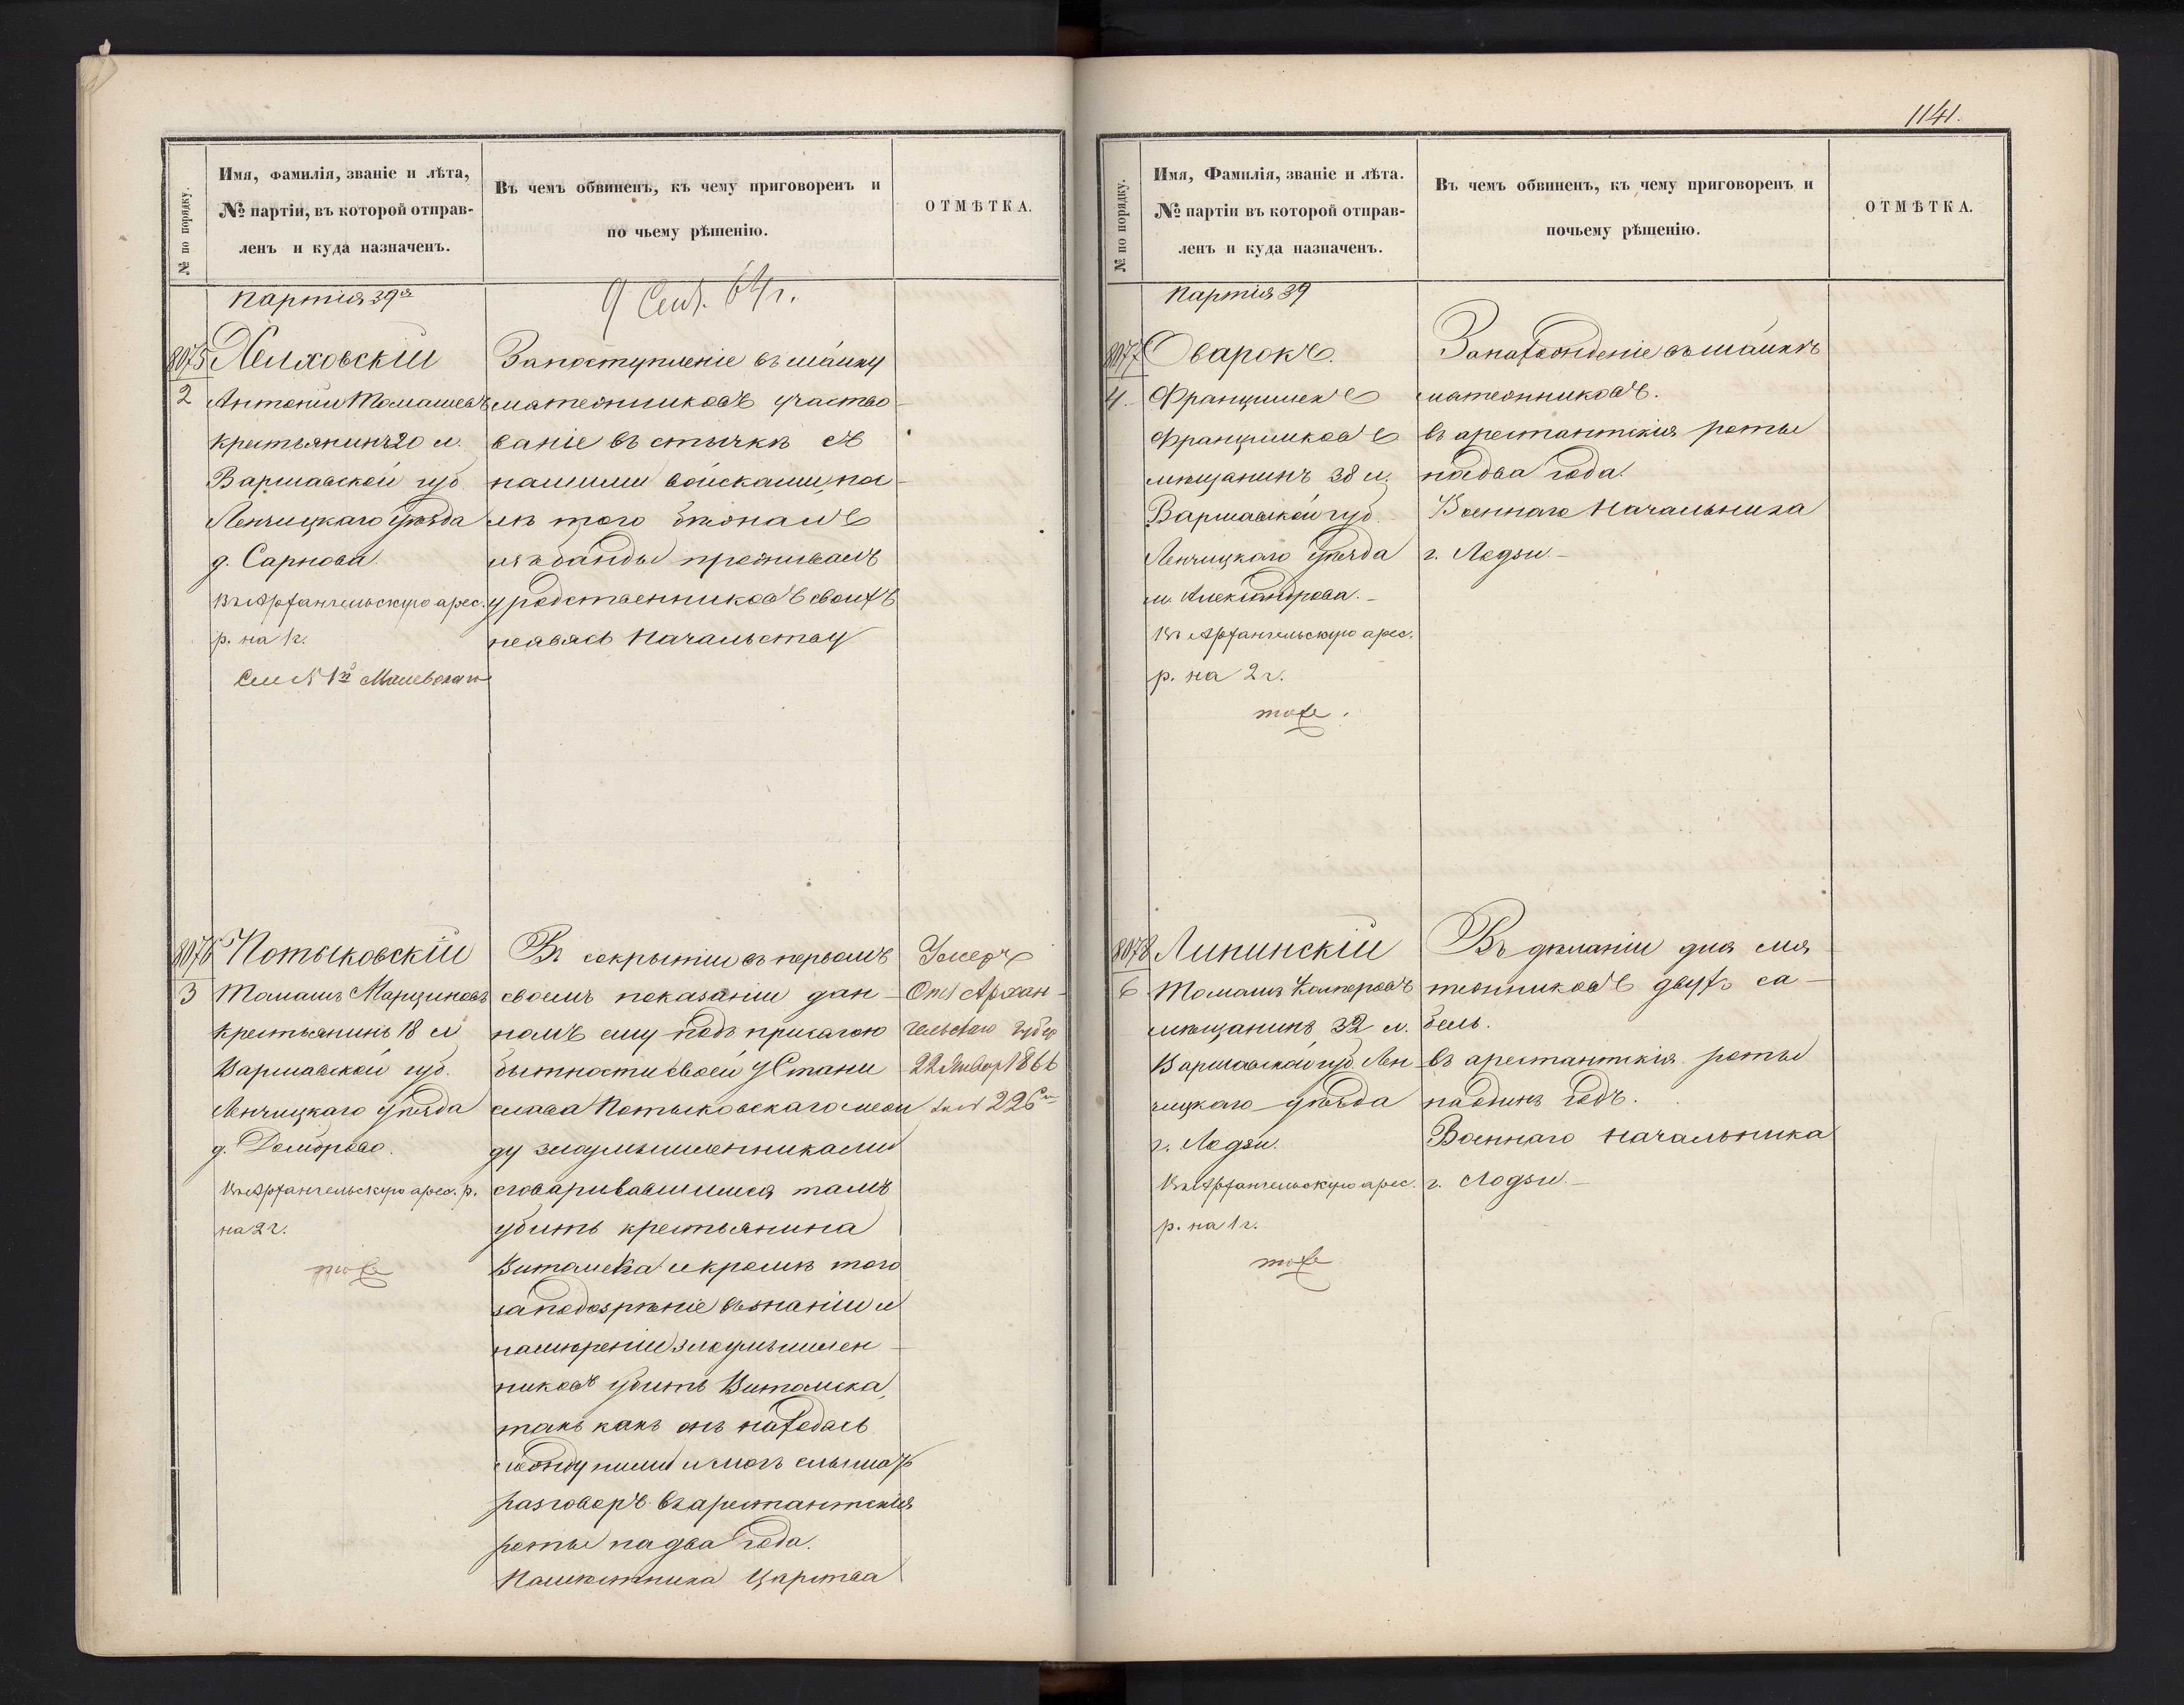 № по порядку.
Имя, фамилія, званіе и лѣта,
№ партіи, въ которой отправ-
ленъ и куда назначенъ.
Въ чемъ обвиненъ, къ чему приговоренъ и
по чьему рѣшенію.
ОТМѢТКА.
Партія 39я
9 Сент. 64 г.
8075
2
Хелховскій
Антоній Томашевъ
крестьянинъ 20 л.
Варшавской губ.
Ленчицкаго уѣзда
д. Сарнова.
Въ Архангельскую арес.
р. на 1 г.
За поступленіе въ шайку
мятежниковъ участво-
ваніе въ стычкѣ съ
нашими войсками, по-
слѣ того бѣжалъ
изъ банды проживалъ
у родственниковъ своихъ
неявясь Начальству
8076
3
Потыковскій
Томашъ Марциновъ
крестьянинъ 18 л.
Варшавской губ.
Ленчицкаго уѣзда
д.
Въ Архангельскую арес. р.
на 2 г.
тоже
Въ сокрытіи въ первомъ
своемъ показаніи дан-
номъ ему подъ присягою
бытности своей у Стани
слава Потыковскаго меж
ду злоумышленниками
сговаривавшимися тамъ
убить крестьянина
Витомска и кромѣ того
заподозрѣніе въ знаніи и
намѣреніи злоумышлен-
никовъ убить Витомска,
такъ какъ онъ находясь
между ними и могъ слышать
разговоръ. въ арестантскія
роты на два года.
Намѣстника Царства
Умеръ
Отн. Архан-
гельскаго губер
22 Январ. 1866
за № 226
1141.
№ по порядку.
Имя, Фамилія, званіе и лѣта.
№ партіи въ которой отправ-
ленъ и куда назначенъ.
Въ чемъ обвиненъ, къ чему приговоренъ и
почьему рѣшенію.
ОТМѢТКА.
Партія 39
8077
4.
Оварокъ.
Францишекъ
Францишковъ
мѣщанинъ 38 л.
Варшавской губ.
Ленчицкаго уѣзда
м. Александрова.
Въ Архангельскую арес.
р. на 2 г.
тоже.
За нахожденіе въ шайкѣ
мятежниковъ.
въ арестантскія роты
на два года.
Военнаго Начальника
г. Лодзи
8078
6
Липинскій
Томашъ Касперовъ
мѣщанинъ 32 л.
Варшавской губ. Лен
чицкаго уѣзда
г. Лодзи.
Въ Архангельскую арес.
р. на 1 г.
тоже
Въ дѣланіи для мя
тежниковъ двухъ са-
бель.
въ арестантскія роты
на одинъ годъ.
Военнаго Начальника
г. Лодзи